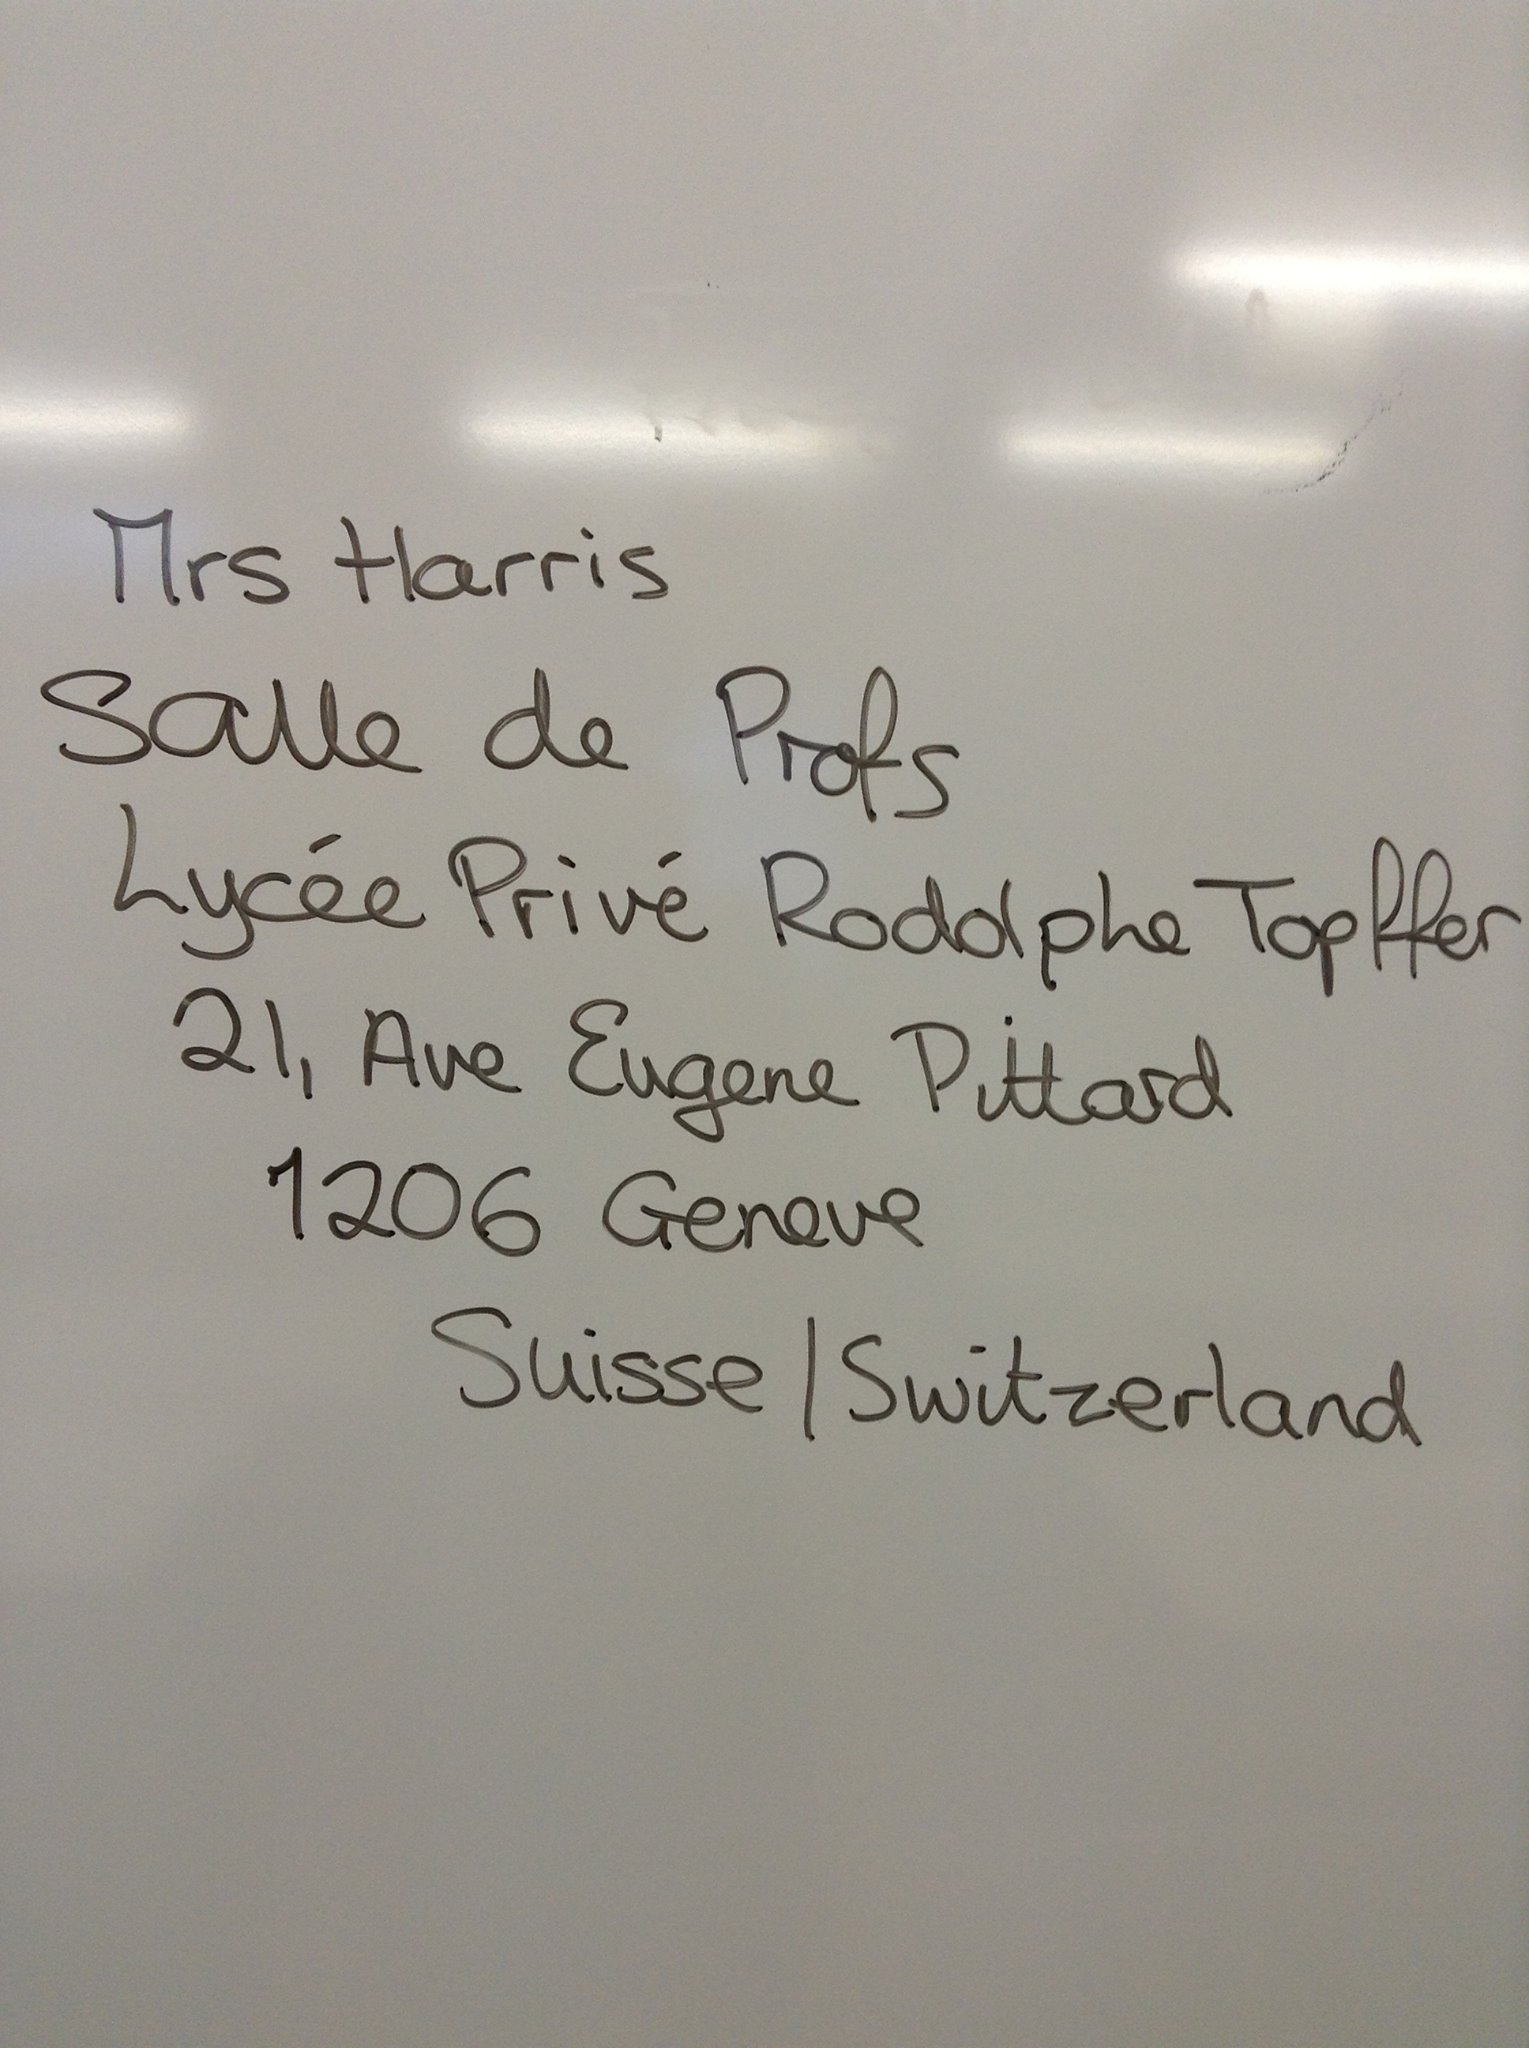 Mrs Harris
Salle de Profs
Lycée Privé Rodolphe Topffer
21, Ave Eugene Pittard
1206 Geneve
Suisse / Switzerland